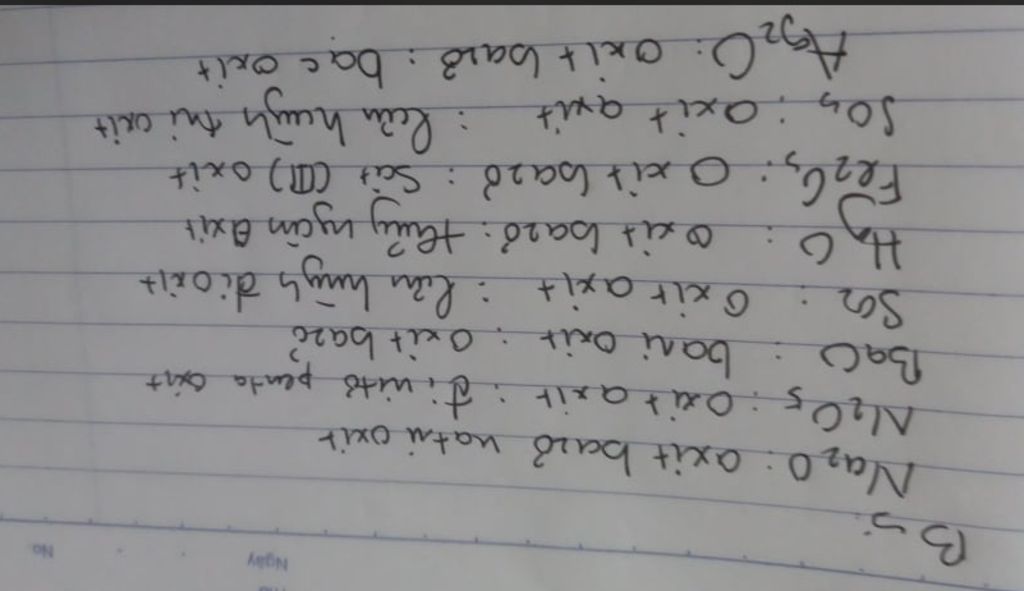 Ngày
No
B5:
Na2O: oxit bazơ natri oxit
N2O5: oxit axit: đi nitơ penta oxit
BaO: bari oxit: oxit bazơ
SO2: oxit axit: lưu huỳnh đi oxit
HgO: oxit bazơ: thuỷ ngân oxit
Fe2O3: oxit bazơ: Sắt (III) oxit
SO3: oxit axit: lưu huỳnh tri oxit
Ag2O: oxit bazơ: bạc oxit